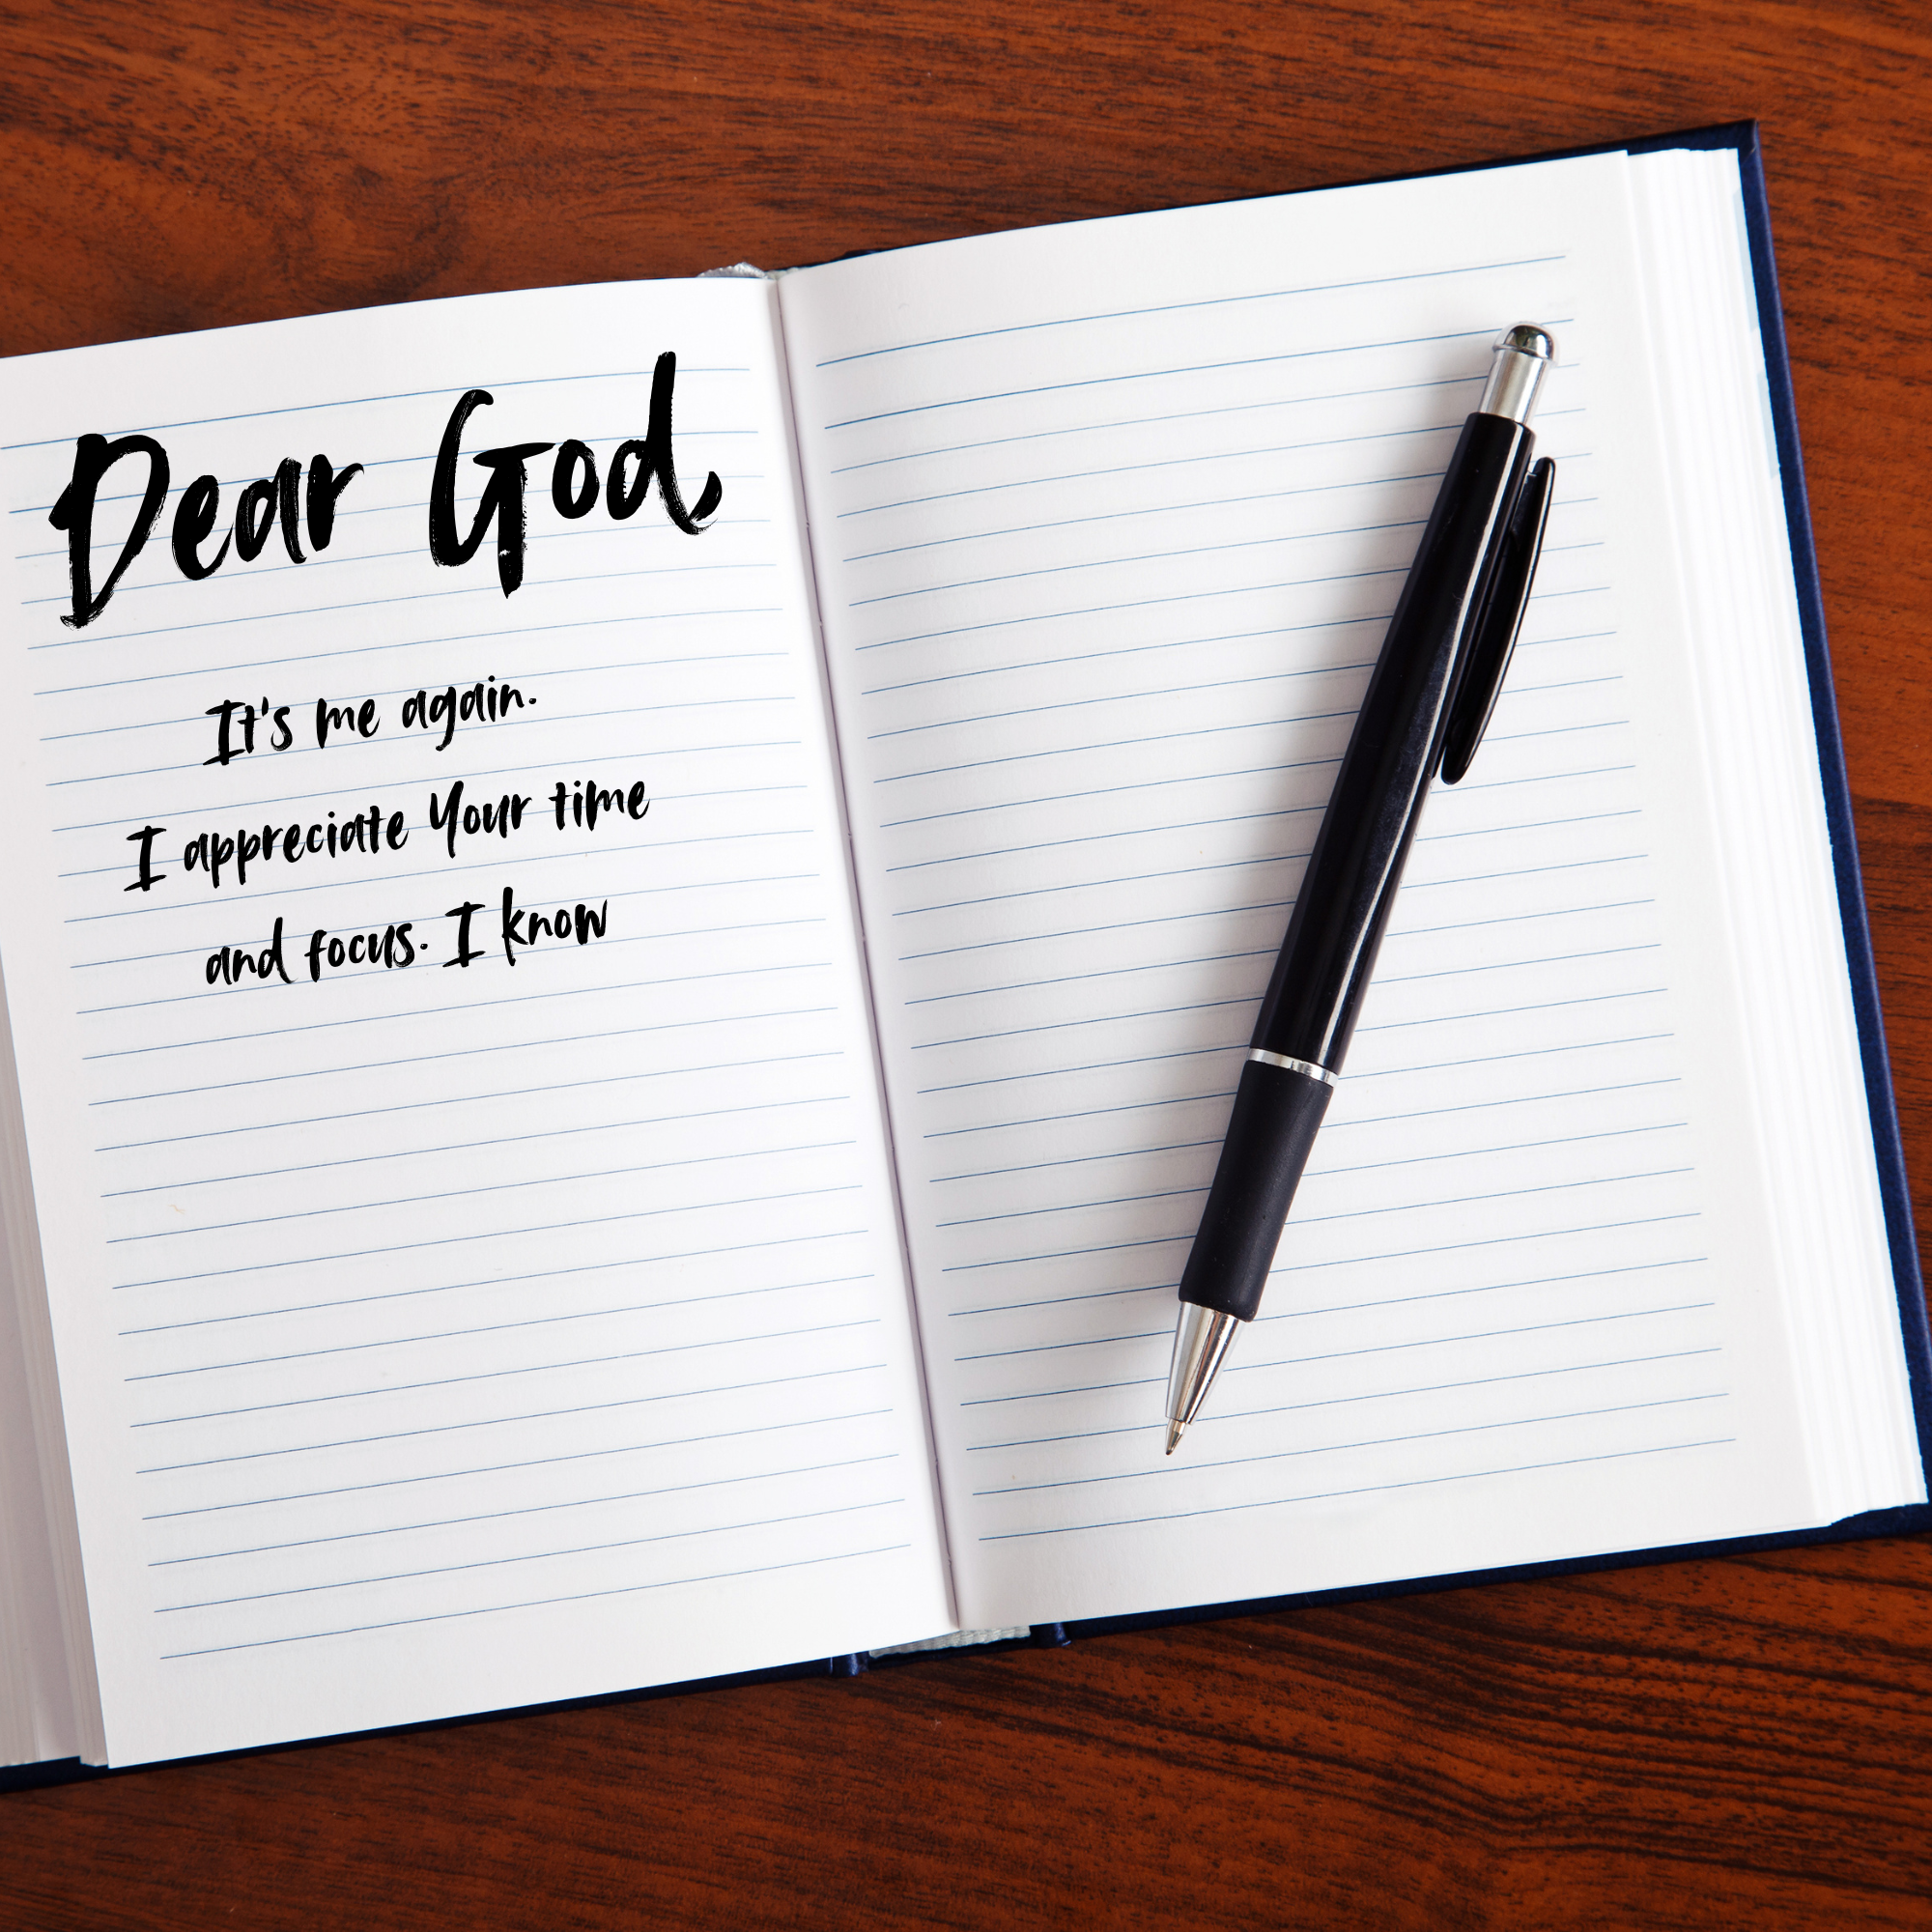 Dear God,
It's me again.
I appreciate Your time
and focus. I know